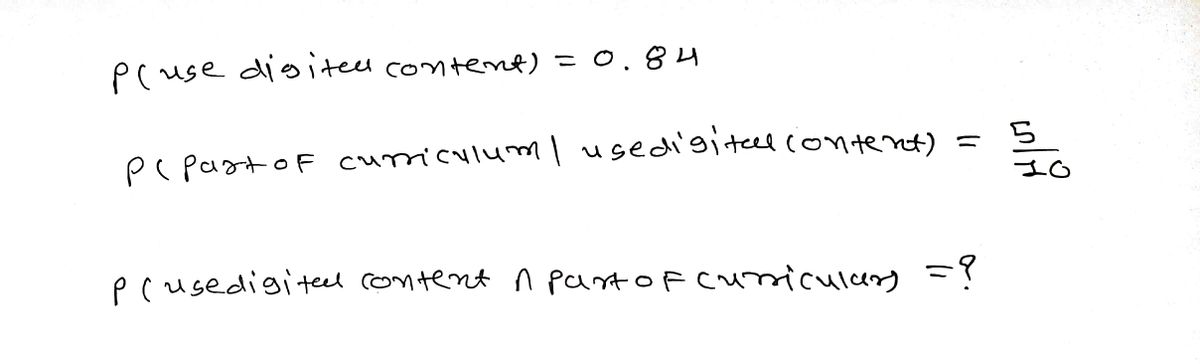 P(use digital content) = 0.84
P(Part OF curriculum | use digital content) = 5/10
P(use digital content ∩ Part OF curriculum) = ?